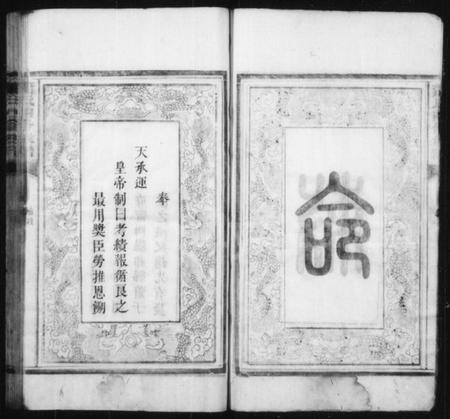 命
奉
天承運
皇帝制曰考績報循良之
最用獎臣勞推恩溯